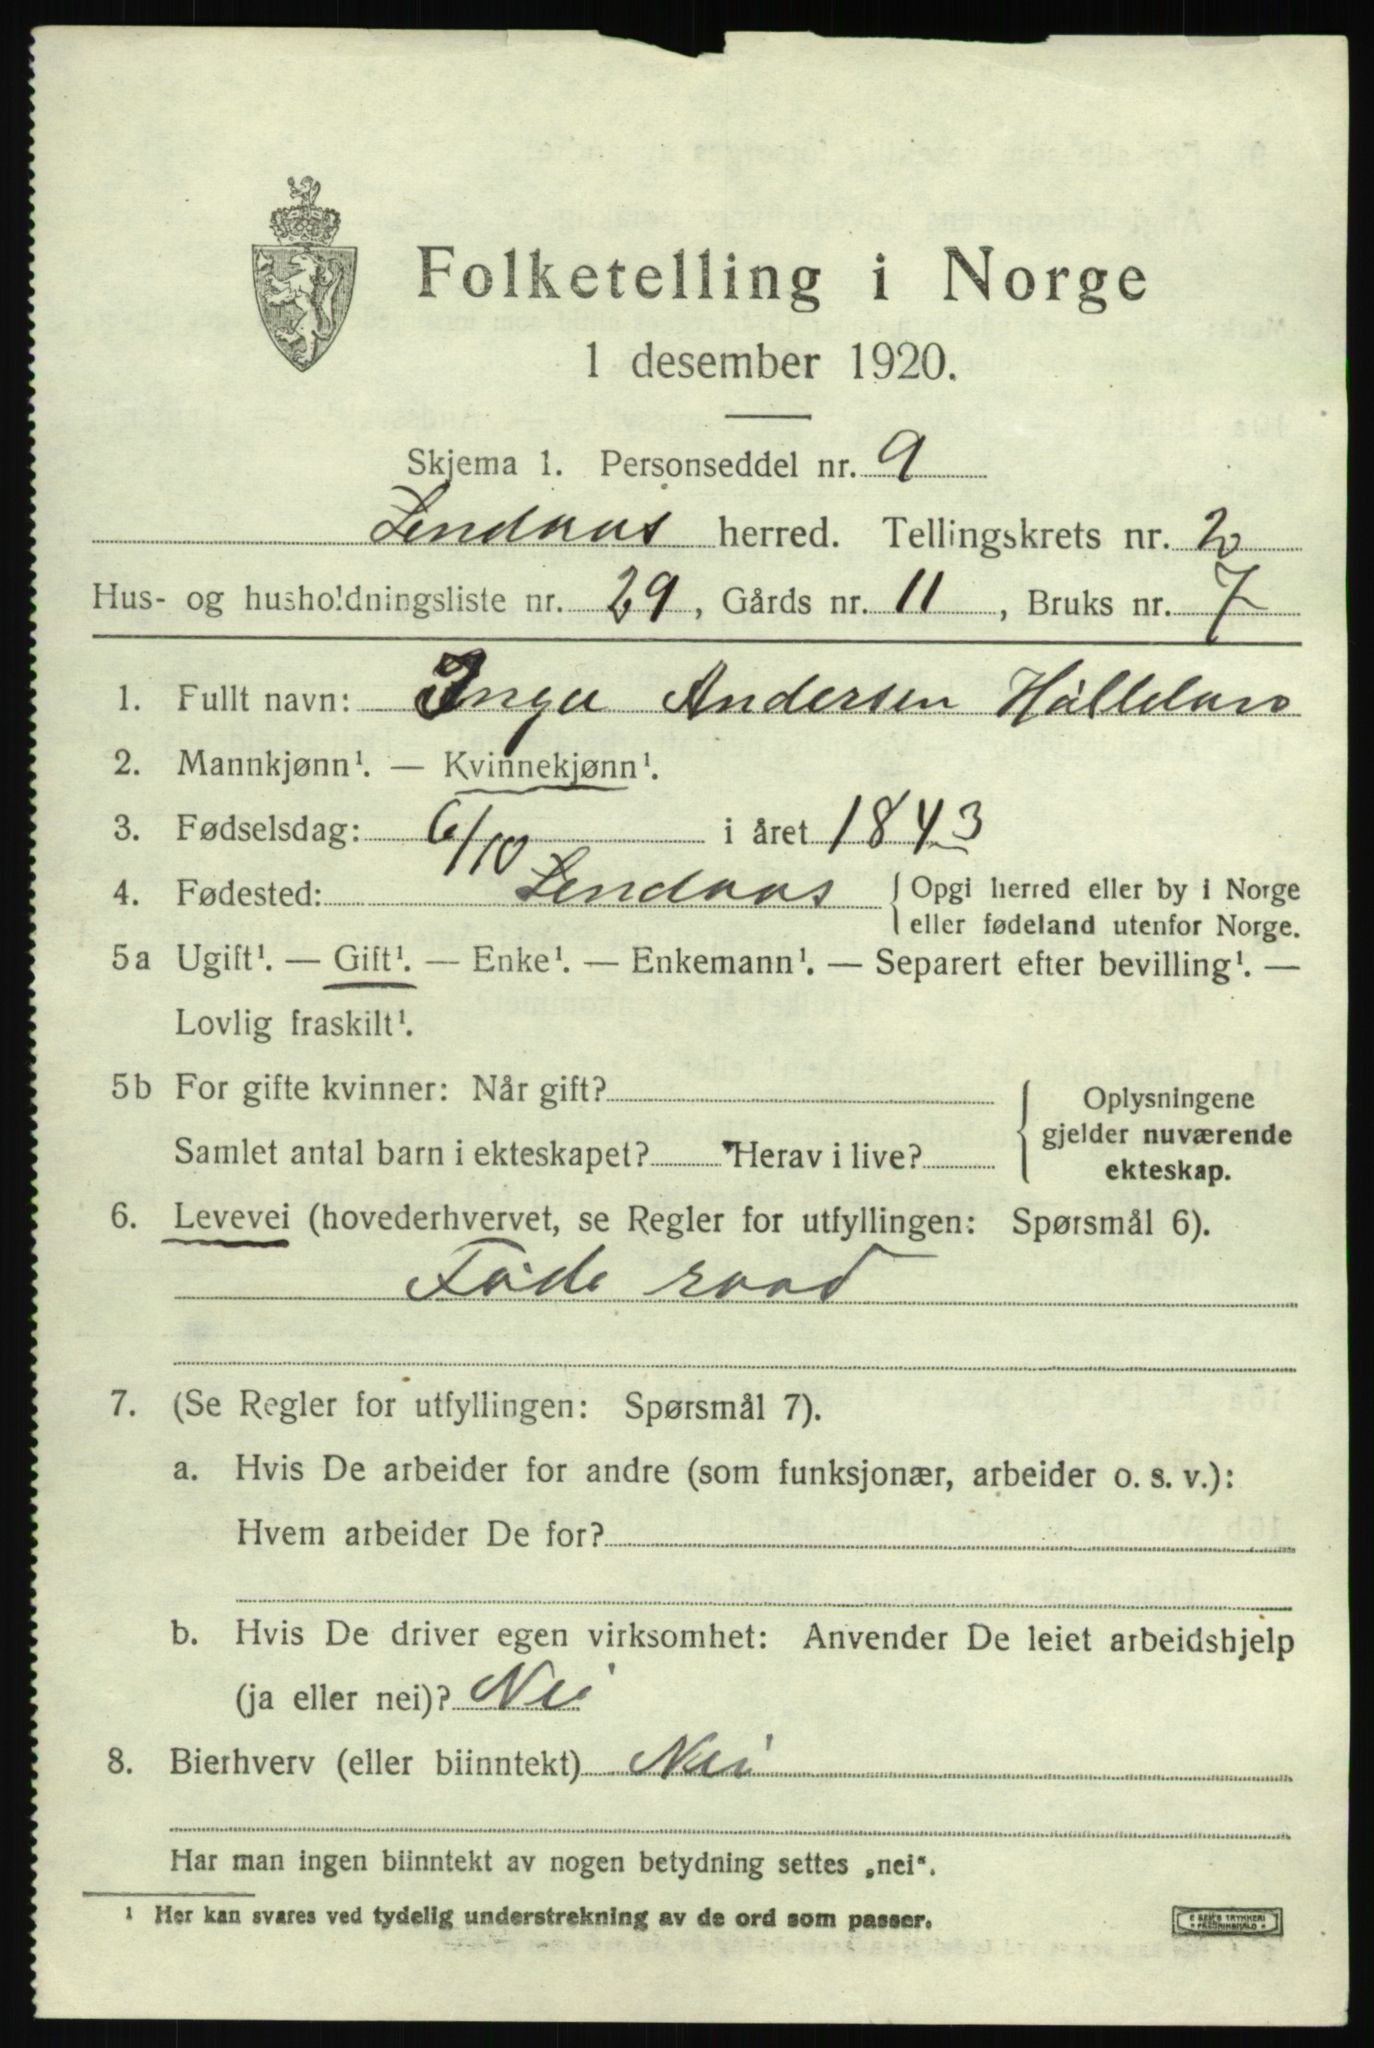 Folketelling i Norge
1 desember 1920.
Skjema 1. Personseddel nr. 9
Lendaas herred. Tellingskrets nr. 2
Hus- og husholdningsliste nr. 29, Gårds nr. 11, Bruks nr. 7
1. Fullt navn: Inga Andersen Hålldans
2. Mannkjønn¹. — Kvinnekjønn¹.
3. Fødselsdag: 6/10 i året 1843
4. Fødested: Lendaas { Opgi herred eller by i Norge
eller fødeland utenfor Norge.
5a Ugift¹. — Gift¹. — Enke¹. — Enkemann¹. — Separert efter bevilling¹. —
Lovlig fraskilt¹.
5b For gifte kvinner: Når gift?
Samlet antal barn i ekteskapet? Herav i live?
Oplysningene
gjelder nuværende
ekteskap.
6. Levevei (hovederhvervet, se Regler for utfyllingen: Spørsmål 6).
Föde raad
7. (Se Regler for utfyllingen: Spørsmål 7).
a. Hvis De arbeider for andre (som funksjonær, arbeider o. s. v.):
Hvem arbeider De for?
b. Hvis De driver egen virksomhet: Anvender De leiet arbeidshjelp
(ja eller nei)? Nei
8. Bierhverv (eller biinntekt) Nei
Har man ingen biinntekt av nogen betydning settes „nei“.
¹ Her kan svares ved tydelig understrekning av de ord som passer.
E SEM'S TRYKKERI
FREDRIKSHALD